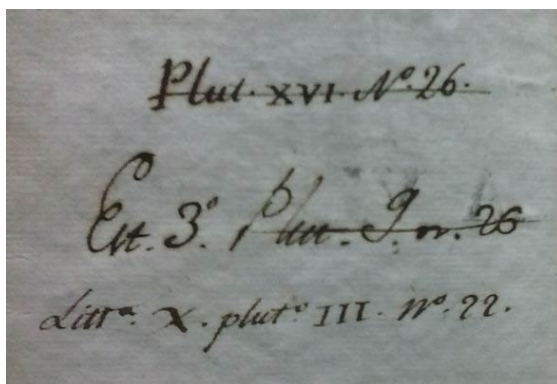 Plut. XVI. Nº. 26.
Est. 3º. Plut. 9. n. 26
Littª. X. plutº III. Nº. 22.